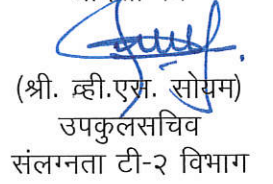 (श्री. व्ही.एस. सोयम)
उपकुलसचिव
संलग्नता टी-२ विभाग